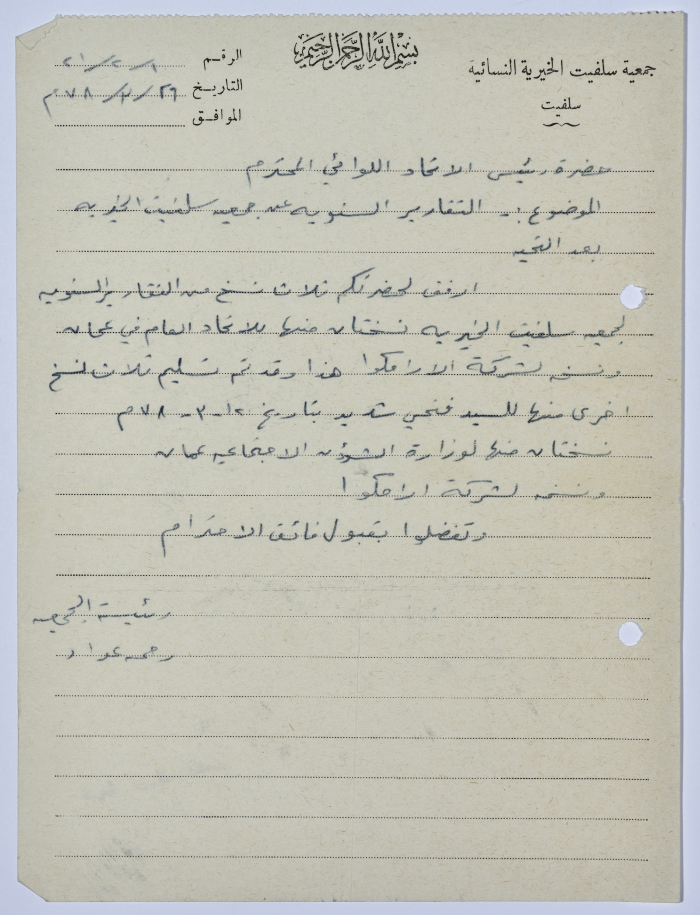 بسم الله الرحمن الرحيم
جمعية سلفيت الخيرية النسائية
سلفيت
الرقم ٢١/٢/١
التاريخ ٢٦/٣/٧٨م
الموافق
حضرة رئيس الاتحاد اللوائي المحترم
الموضوع :- التقارير السنويه عن جمعيه سلفيت الخيريه
بعد التحيه
ارفق لحضرتكم ثلاث نسخ من التقارير السنويه
لجمعيه سلفيت الخيريه نسختان منها للاتحاد العام في عمان
ونسخه لشركة الارامكوا هذا وقد تم تسليم ثلاث نسخ
اخرى منها للسيد فتحي شديد بتاريخ ١٢-٣-٧٨م
نسختان منها لوزارة الشؤن الاجتماعيه عمان
ونسخه لشركة ارامكوا
وتفضلوا بقبول فائق الاحترام
رئيسة الجمعيه
رحمه عواد